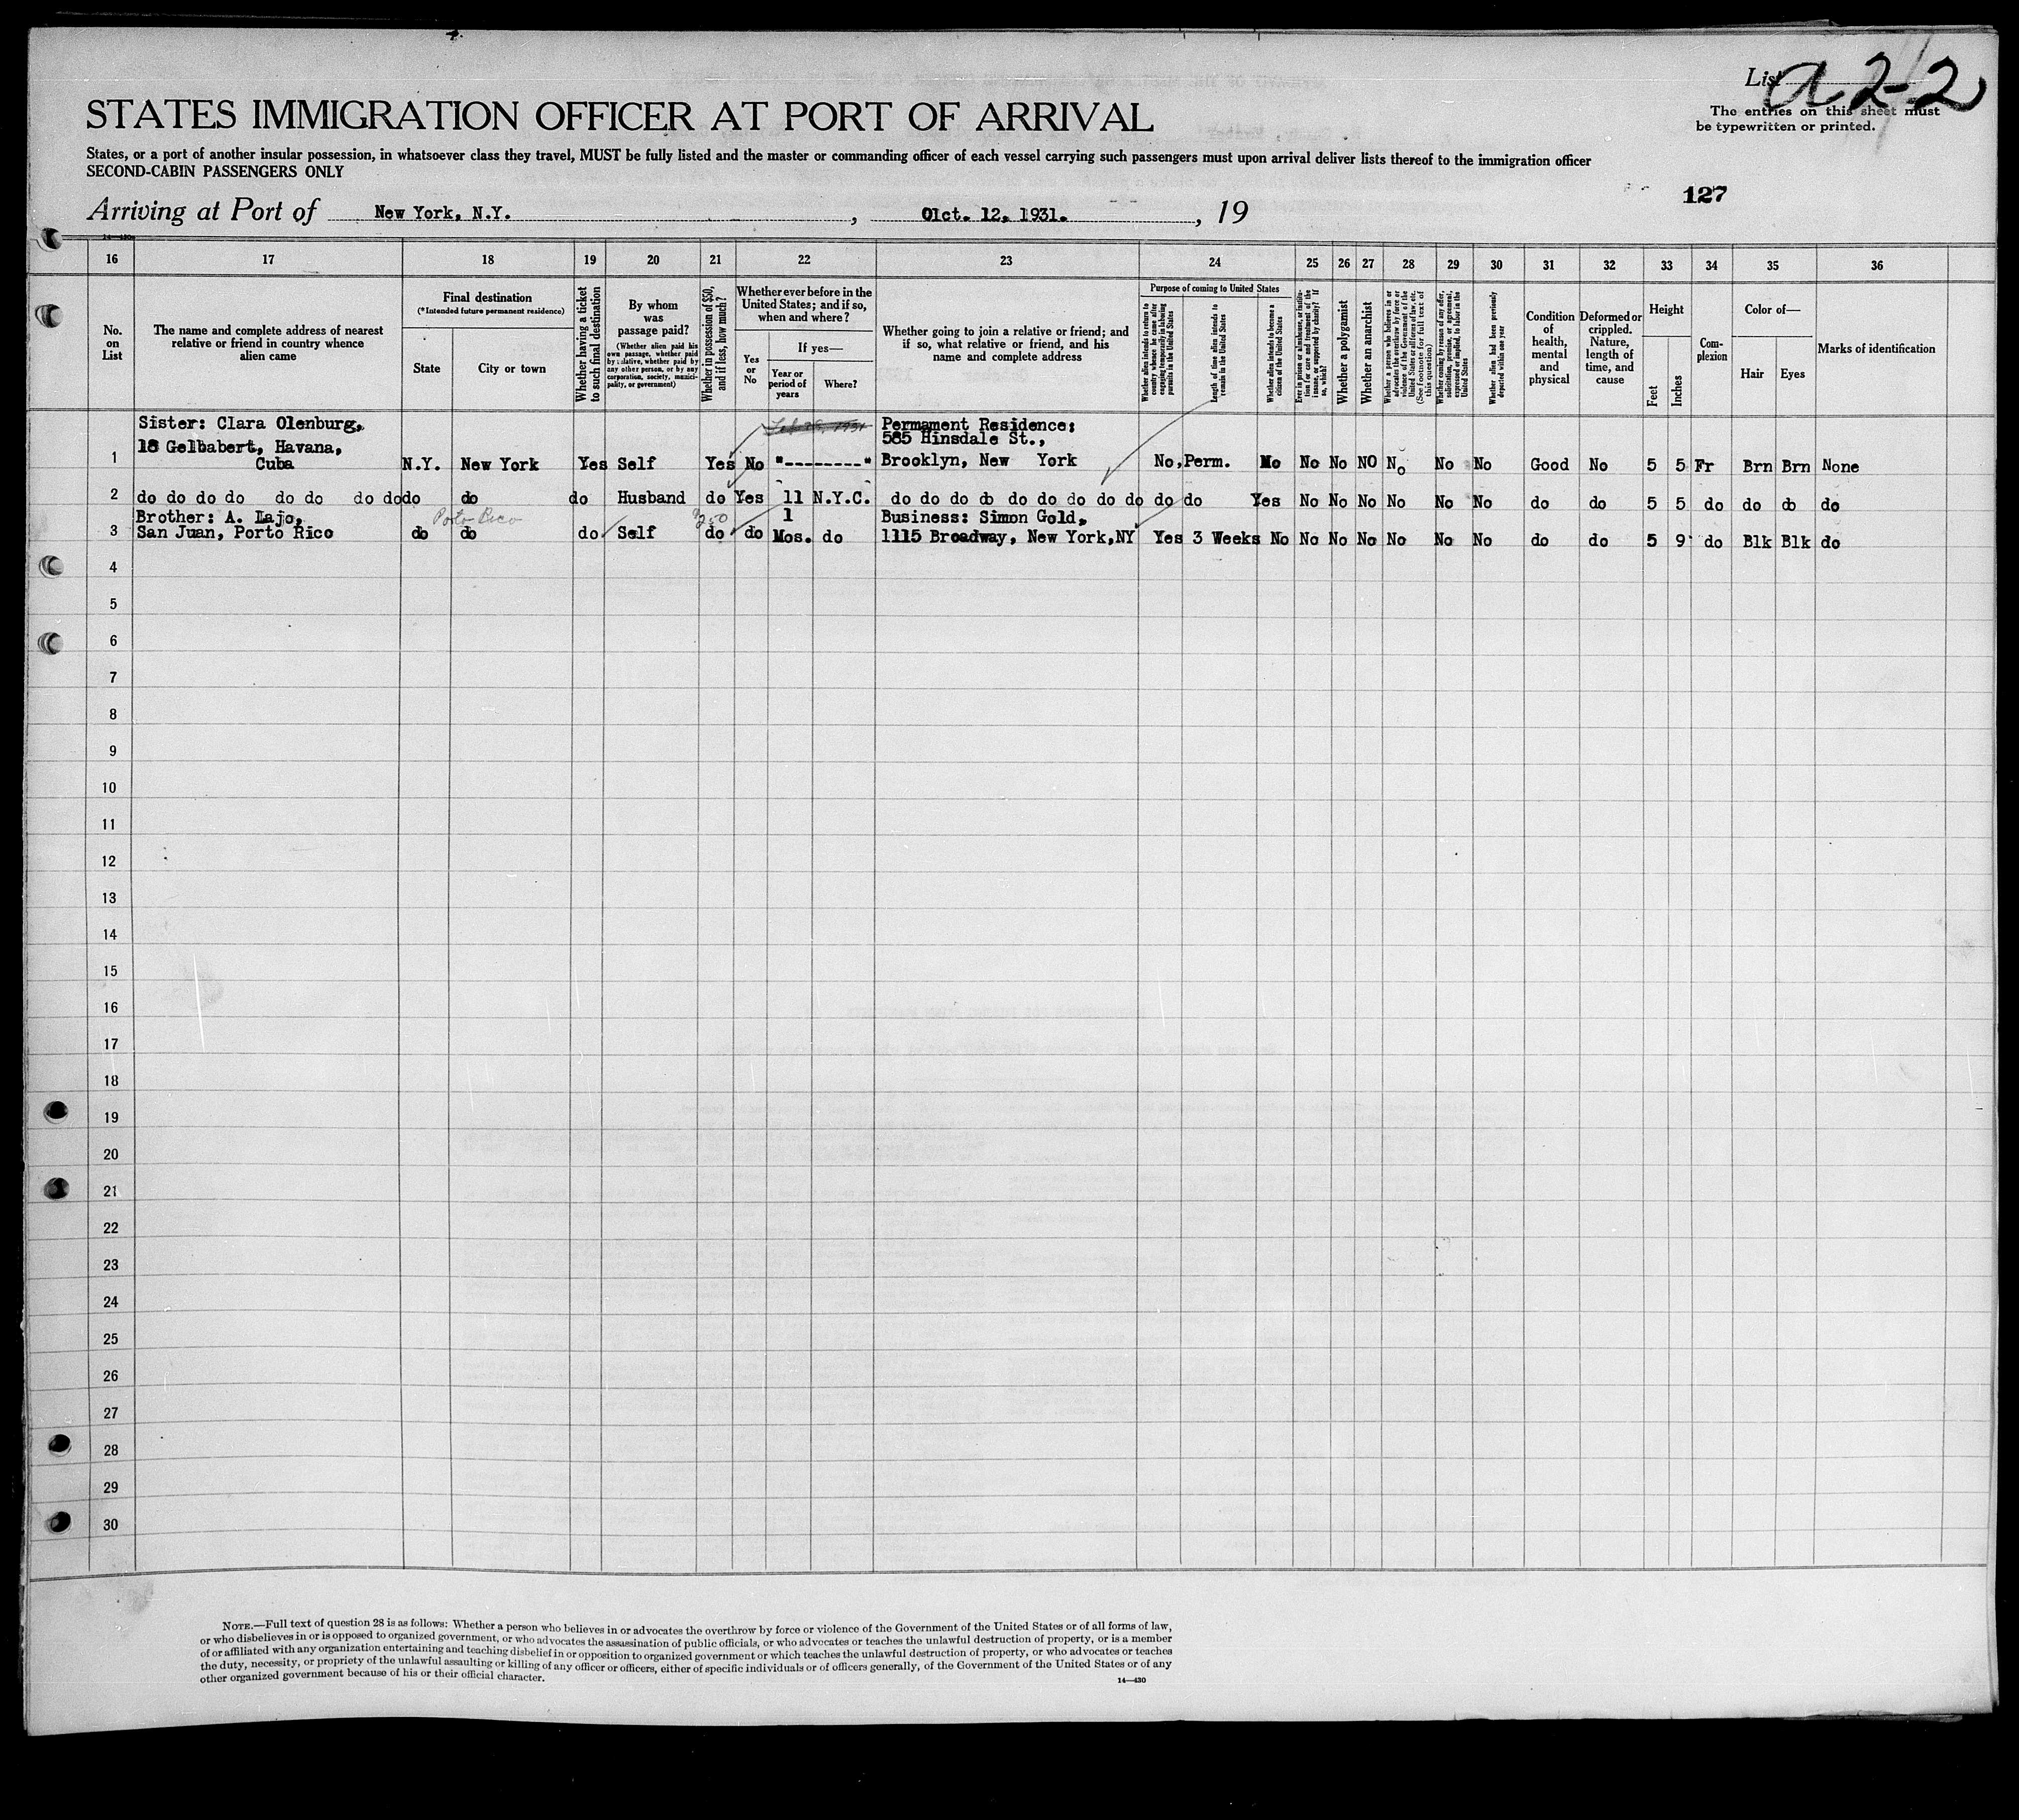 List a 2-2
STATES IMMIGRATION OFFICER AT PORT OF ARRIVAL
The entries on this sheet must
be typewritten or printed.
States, or a port of another insular possession, in whatsoever class they travel, MUST be fully listed and the master or commanding officer of each vessel carrying such passengers must upon arrival deliver lists thereof to the immigration officer
SECOND-CABIN PASSENGERS ONLY
127
Arriving at Port of New York, N.Y. , Oct. 12, 1931. , 19
14—430
16 17 18 19 20 21 22 23 24 25 26 27 28 29 30 31 32 33 34 35 36
No. on List
The name and complete address of nearest relative or friend in country whence alien came
Final destination
(*Intended future permanent residence)
State
City or town
Whether having a ticket to such final destination
By whom was passage paid?
(Whether alien paid his own passage, whether paid by relative, whether paid by any other person, or by any corporation, society, municipality, or government)
Whether in possession of $50, and if less, how much?
Whether ever before in the United States; and if so, when and where?
Yes or No
If yes—
Year or period of years
Where?
Whether going to join a relative or friend; and if so, what relative or friend, and his name and complete address
Purpose of coming to United States
Whether alien intends to return to country whence he came after engaging temporarily in laboring pursuits in the United States
Length of time alien intends to remain in the United States
Whether alien intends to become a citizen of the United States
Ever in prison or almshouse, or institution for care and treatment of the insane, or supported by charity? If so, which?
Whether a polygamist
Whether an anarchist
Whether a person who believes in or advocates the overthrow by force or violence of the Government of the United States or all forms of law, etc. (See footnote for full text of this question)
Whether coming by reason of any offer, solicitation, promise, or agreement, expressed or implied, to labor in the United States
Whether alien had been previously deported within one year
Condition of health, mental and physical
Deformed or crippled. Nature, length of time, and cause
Height
Feet
Inches
Complexion
Color of—
Hair
Eyes
Marks of identification
Sister: Clara Olenburg, Feb 1931 Permament Residence;
18 Gelbabert, Havana, 585 Hinsdale St.,
1 Cuba N.Y. New York Yes Self Yes No "--------" Brooklyn, New York No, Perm. No No No NO No No No Good No 5 5 Fr Brn Brn None
2 do do do do do do do do do do do Husband do Yes 11 N.Y.C. do do do do do do do do do do do Yes No No No No No No do do 5 5 do do do do
Brother: A. Lajo, Porto Rico $250 1 Business: Simon Gold,
3 San Juan, Porto Rico do do do Self do do Mos. do 1115 Broadway, New York,NY Yes 3 Weeks No No No No No No No do do 5 9 do Blk Blk do
4
5
6
7
8
9
10
11
12
13
14
15
16
17
18
19
20
21
22
23
24
25
26
27
28
29
30
NOTE.—Full text of question 28 is as follows: Whether a person who believes in or advocates the overthrow by force or violence of the Government of the United States or of all forms of law,
or who disbelieves in or is opposed to organized government, or who advocates the assassination of public officials, or who advocates or teaches the unlawful destruction of property, or is a member
of or affiliated with any organization entertaining and teaching disbelief in or opposition to organized government or which teaches the unlawful destruction of property, or who advocates or teaches
the duty, necessity, or propriety of the unlawful assaulting or killing of any officer or officers, either of specific individuals or of officers generally, of the Government of the United States or of any
other organized government because of his or their official character.
14—430